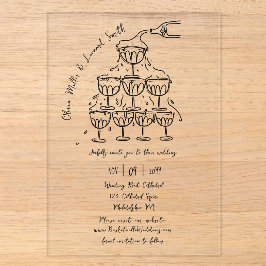 Olivia Mills & Leonard Smith
Joyfully invite you to their wedding
NOV | 09 | 2099
Wheeling Park Cathedral
123 Cathedral Square
Philadelphia PA
Please visit our website:
formal invitation to follow